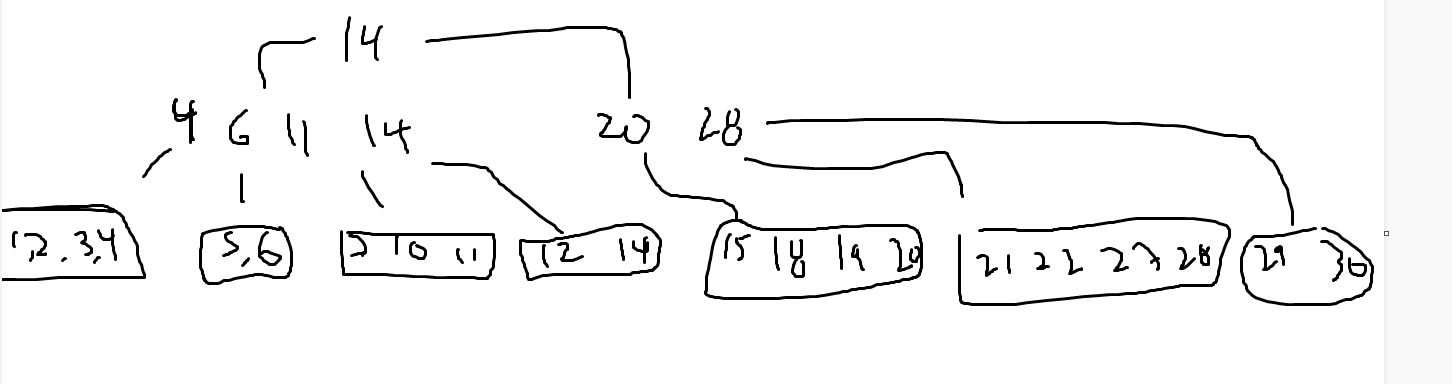 14
4 6 11 14 20 28
1,2,3,4 5,6 9 10 11 12 14 15 18 19 20 21 22 27 28 29 30